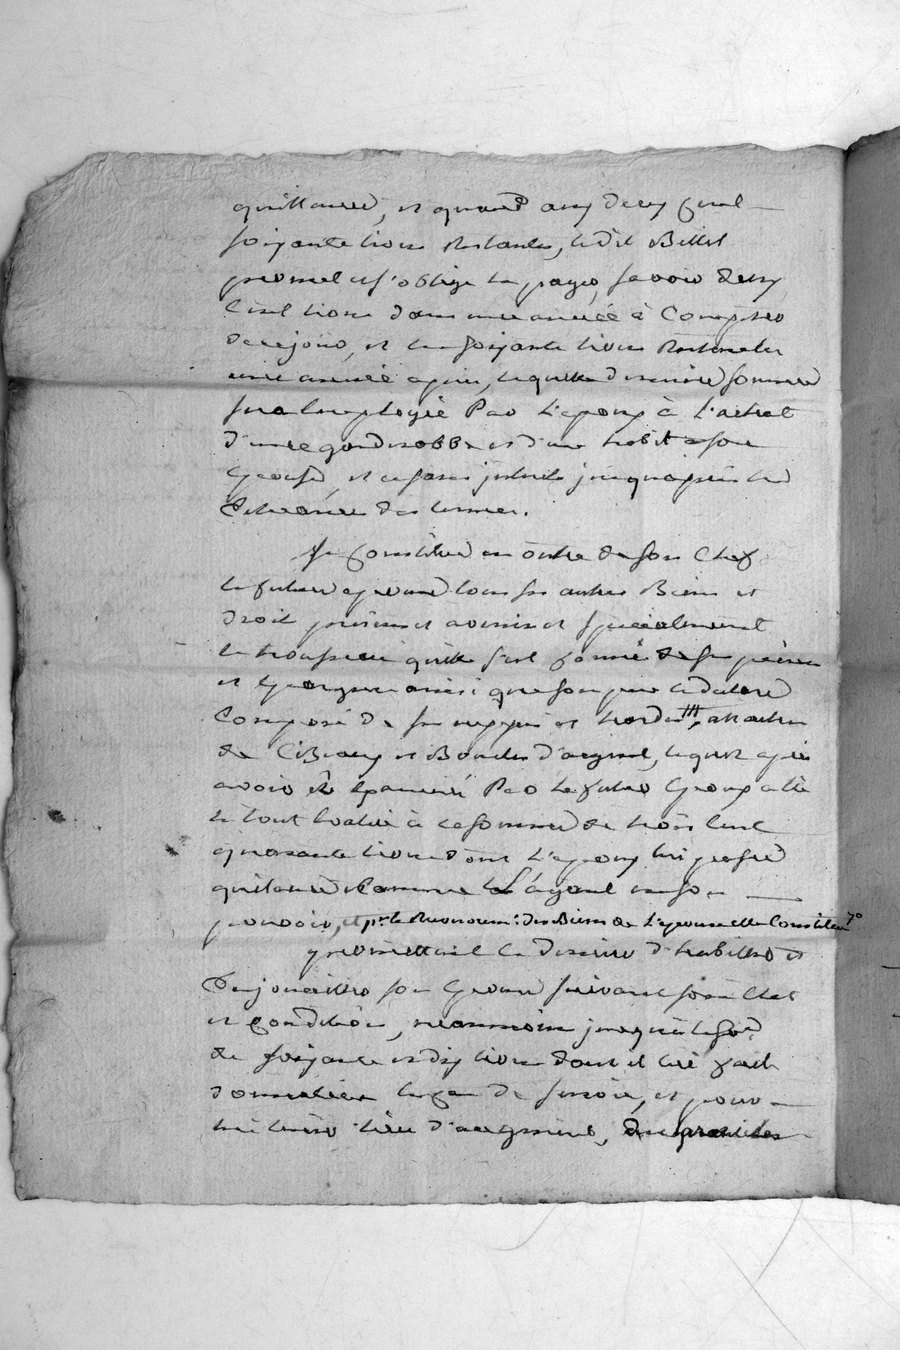 quittance, et quand aux deux cent
soixante livres restantes, ledit Billet
promet et s'oblige la payer, savoir deux
cent livres dans une année à Compter
de ce jour, et les soixante livres restantes
une année après, laquelle derniere somme
sera Employée Par l'epoux à l'achat
d'une garderobbe et d'un habit a son
Epouse, et ce sans interets jusqu'apres les
Echeances des termes.
Se Constitue en outre de son Chef
la future epouse tous ses autres Biens et
droits presens et avenir et specialement
le trousseau qu'elle s'est formé de ses peines
et Epargnes ainsi que son
Composé de ses nippes et hardes, attaches
de et Boucles d'argent, lequel après
avoir été Examiné Par le futur Epoux a été
le tout Evalué à la somme de trois cent
quarante livres dont l'epoux lui passe
quittance Comme L'ayant en son
pouvoir, et pr. le des Biens de l'epouse elle Constitue
promettant le dernier d'habiller et
Enjoailler son Epouse suivant son Etat
et Condition, neanmoins jusqu'a la so.e
de soixante et dix livres dont il lui fait
donation en cas de survie, et pour
lui tenir lieu d'augment,